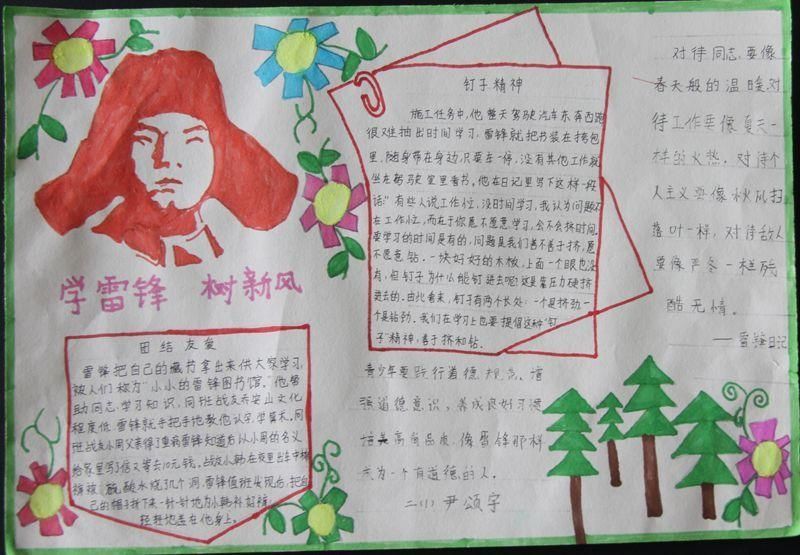 学雷锋 树新风
团结友爱
雷锋把自己的藏书拿出来供大家学习,
被人们称为“小小的雷锋图书馆。”他帮
助同志学习知识,同班战友乔安山文化
程度低,雷锋就手把手地教他认字,学算术。同
班战友小周父亲得了重病雷锋知道后以小周的名义
给家里写了信又寄去10元钱。战友小韩在夜里出车中棉
裤被硫酸水烧了几个洞,雷锋值班发现后,把自
己的帽子拆下来一针一针地为小韩补好裤
轻轻地盖在他身上。
钉子精神
施工任务中,他整天驾驶汽车东奔西跑
很难抽出时间学习,雷锋就把书装在挎包
里,随身带在身边,只要车一停,没有其他工作就
坐在驾驶室里看书。他在日记里写下这样一段
话:“有些人说工作忙,没时间学习,我认为问题不
在工作忙,而在于你愿不愿意学习,会不会挤时间。
要学习的时间是有的,问题是我们善不善于挤,愿
不愿意钻。一块好好的木板,上面一个眼也没
有,但钉子为什么能钉进去呢?这是靠压力硬挤
进去的。由此看来,钉子有两个长处:一个是挤劲,一
个是钻劲。我们在学习上也要提倡这种“钉
子”精神,善于挤和钻。
青少年要践行道德规范。增
强道德意识,养成良好习惯
培养高尚品质,像雷锋那样
成为一个有道德的人。
二(1) 尹颂宇
对待同志,要像
春天般的温暖,对
待工作要像夏天一
样的火热,对待个
人主义要像秋风扫
落叶一样,对待敌人
要像严冬一样残
酷无情。
——雷锋日记